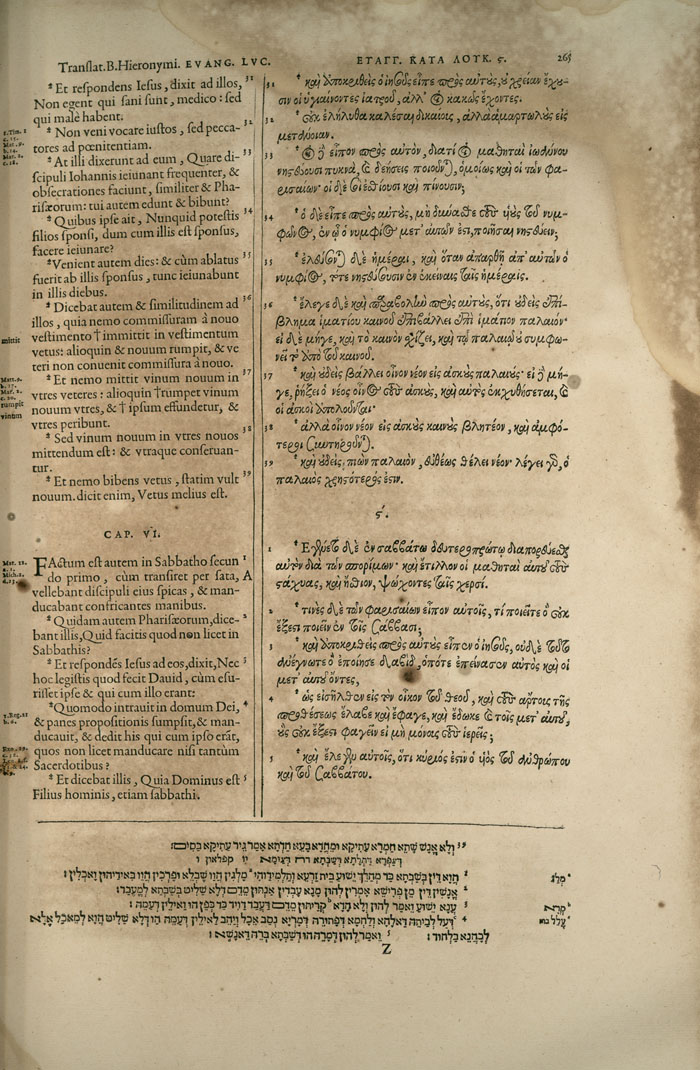 Translat. B. Hieronymi. EVANG. LVC.
* Et respondens Iesus, dixit ad illos, 31
Non egent qui sani sunt, medico: sed
qui malè habent.
* Non veni vocare iustos, sed pecca- 32
tores ad pœnitentiam.
* At illi dixerunt ad eum, Quare di- 33
scipuli Iohannis ieiunant frequenter, &
obsecrationes faciunt, similiter & Pha-
risæorum: tui autem edunt & bibunt?
* Quibus ipse ait, Nunquid potestis 34
filios sponsi, dum cum illis est sponsus,
facere ieiunare?
* Venient autem dies: & cùm ablatus 35
fuerit ab illis sponsus, tunc ieiunabunt
in illis diebus.
* Dicebat autem & similitudinem ad 36
illos, quia nemo commissuram à nouo
vestimento † immittit in vestimentum
vetus: alioquin & nouum rumpit, & ve
teri non conuenit commissura à nouo.
* Et nemo mittit vinum nouum in 37
vtres veteres: alioquin † rumpet vinum
nouum vtres, & † ipsum effundetur, &
vtres peribunt.
* Sed vinum nouum in vtres nouos 38
mittendum est: & vtraque conseruan-
tur.
* Et nemo bibens vetus, statim vult 39
nouum. dicit enim, Vetus melius est.
CAP. VI.
FActum est autem in Sabbatho secun 1
do primo, cùm transiret per sata, A
vellebant discipuli eius spicas, & man-
ducabant confricantes manibus.
* Quidam autem Pharisæorum, dice- 2
bant illis, Quid facitis quod non licet in
Sabbathis?
* Et respondēs Iesus ad eos, dixit, Nec 3
hoc legistis quod fecit Dauid, cùm esu-
risset ipse & qui cum illo erant:
* Quomodo intrauit in domum Dei, 4
& panes propositionis sumpsit, & man-
ducauit, & dedit his qui cum ipso erāt,
quos non licet manducare nisi tantùm
Sacerdotibus?
* Et dicebat illis, Quia Dominus est 5
Filius hominis, etiam sabbathi.
ΕΥΑΓΓ. ΚΑΤΑ ΛΟΥΚ. ς. 265
31 * καὶ ἀποκριθεὶς ὁ ἰησοῦς εἶπε πρὸς αὐτούς, οὐ χρείαν ἔχου-
σιν οἱ ὑγιαίνοντες ἰατροῦ, ἀλλ' οἱ κακῶς ἔχοντες.
32 * οὐκ ἐλήλυθα καλέσαι δικαίους, ἀλλὰ ἁμαρτωλοὺς εἰς
μετάνοιαν.
33 * οἱ δὲ εἶπον πρὸς αὐτόν, διατί οἱ μαθηταὶ ἰωάννου
νηστεύουσι πυκνὰ, καὶ δεήσεις ποιοῦνται, ὁμοίως καὶ οἱ τῶν φα-
ρισαίων· οἱ δὲ σοὶ ἐσθίουσι καὶ πίνουσιν;
34 * ὁ δὲ εἶπε πρὸς αὐτούς, μὴ δύνασθε τοὺς υἱοὺς τοῦ νυμ-
φῶνος, ἐν ᾧ ὁ νυμφίος μετ' αὐτῶν ἐστι, ποιῆσαι νηστεύειν;
35 * ἐλεύσονται δὲ ἡμέραι, καὶ ὅταν ἀπαρθῇ ἀπ' αὐτῶν ὁ
νυμφίος, τότε νηστεύσουσιν ἐν ἐκείναις ταῖς ἡμέραις.
36 * ἔλεγε δὲ καὶ παραβολὴν πρὸς αὐτούς, ὅτι οὐδεὶς ἐπί-
βλημα ἱματίου καινοῦ ἐπιβάλλει ἐπὶ ἱμάτιον παλαιόν·
εἰ δὲ μήγε, καὶ τὸ καινὸν σχίζει, καὶ τῷ παλαιῷ οὐ συμφω-
νεῖ τὸ ἀπὸ τοῦ καινοῦ.
37 * καὶ οὐδεὶς βάλλει οἶνον νέον εἰς ἀσκοὺς παλαιούς· εἰ δὲ μή-
γε, ῥήξει ὁ νέος οἶνος τοὺς ἀσκούς, καὶ αὐτὸς ἐκχυθήσεται, καὶ
οἱ ἀσκοὶ ἀπολοῦνται·
38 * ἀλλὰ οἶνον νέον εἰς ἀσκοὺς καινοὺς βλητέον, καὶ ἀμφό-
τεροι συντηροῦνται.
39 * καὶ οὐδεὶς πιὼν παλαιὸν, εὐθέως θέλει νέον· λέγει γὰρ, ὁ
παλαιὸς χρηστότερός ἐστιν.
ς.
1 * Εγένετο δὲ ἐν σαββάτῳ δευτεροπρώτῳ διαπορεύεσθαι
αὐτὸν διὰ τῶν σπορίμων· καὶ ἔτιλλον οἱ μαθηταὶ αὐτοῦ τοὺς
στάχυας, καὶ ἤσθιον, ψώχοντες ταῖς χερσί.
2 * τινὲς δὲ τῶν φαρισαίων εἶπον αὐτοῖς, τί ποιεῖτε ὃ οὐκ
ἔξεστι ποιεῖν ἐν τοῖς σάββασι;
3 * καὶ ἀποκριθεὶς πρὸς αὐτοὺς εἶπεν ὁ ἰησοῦς, οὐδὲ τοῦτο
ἀνέγνωτε ὃ ἐποίησε δαβὶδ, ὁπότε ἐπείνασεν αὐτὸς καὶ οἱ
μετ' αὐτοῦ ὄντες,
4 * ὡς εἰσῆλθεν εἰς τὸν οἶκον τοῦ θεοῦ, καὶ τοὺς ἄρτους τῆς
προθέσεως ἔλαβε καὶ ἔφαγε, καὶ ἔδωκε καὶ τοῖς μετ' αὐτοῦ,
οὓς οὐκ ἔξεστι φαγεῖν εἰ μὴ μόνους τοὺς ἱερεῖς;
5 * καὶ ἔλεγεν αὐτοῖς, ὅτι κύριός ἐστιν ὁ υἱὸς τοῦ ἀνθρώπου
καὶ τοῦ σαββάτου.
ולא אנש שתא חמרא עתיקא ומחדא בעא חדתא אמר גיר עתיקא בסים:
הוא דין בשבתא כד מהלך ישוע בית זרעא ותלמידוהי מלגין הוו שבלא ופרכין הוו באידיהון ואכלין:
אנשין דין מן פרישא אמרין להון מנא עבדין אנתון מדם דלא שליט בשבתא למעבד:
ענא ישוע ואמר להון ולא הדא קריתון מדם דעבד דויד כד כפן הו ואילין דעמה:
דעל לביתה דאלהא ולחמא דפתורה דמריא נסב אכל ויהב לאילין דעמה הו דלא שליט הוא למאכל אלא
לכהנא בלחוד: ואמר להון דמרה הו דשבתא ברה דאנשא:
Z